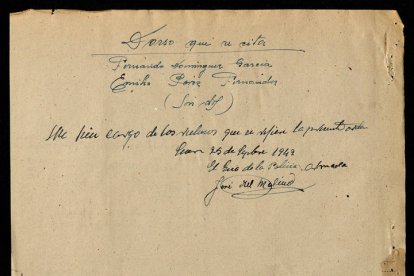 Dorso que se cita
Fernando Dominguez Garcia
Emilio Perez Fernandez
(Son dos)
Me hice cargo de los que se refiere la presente
25 de Sepbre 1943
El de la Policia Armada
José del Molino